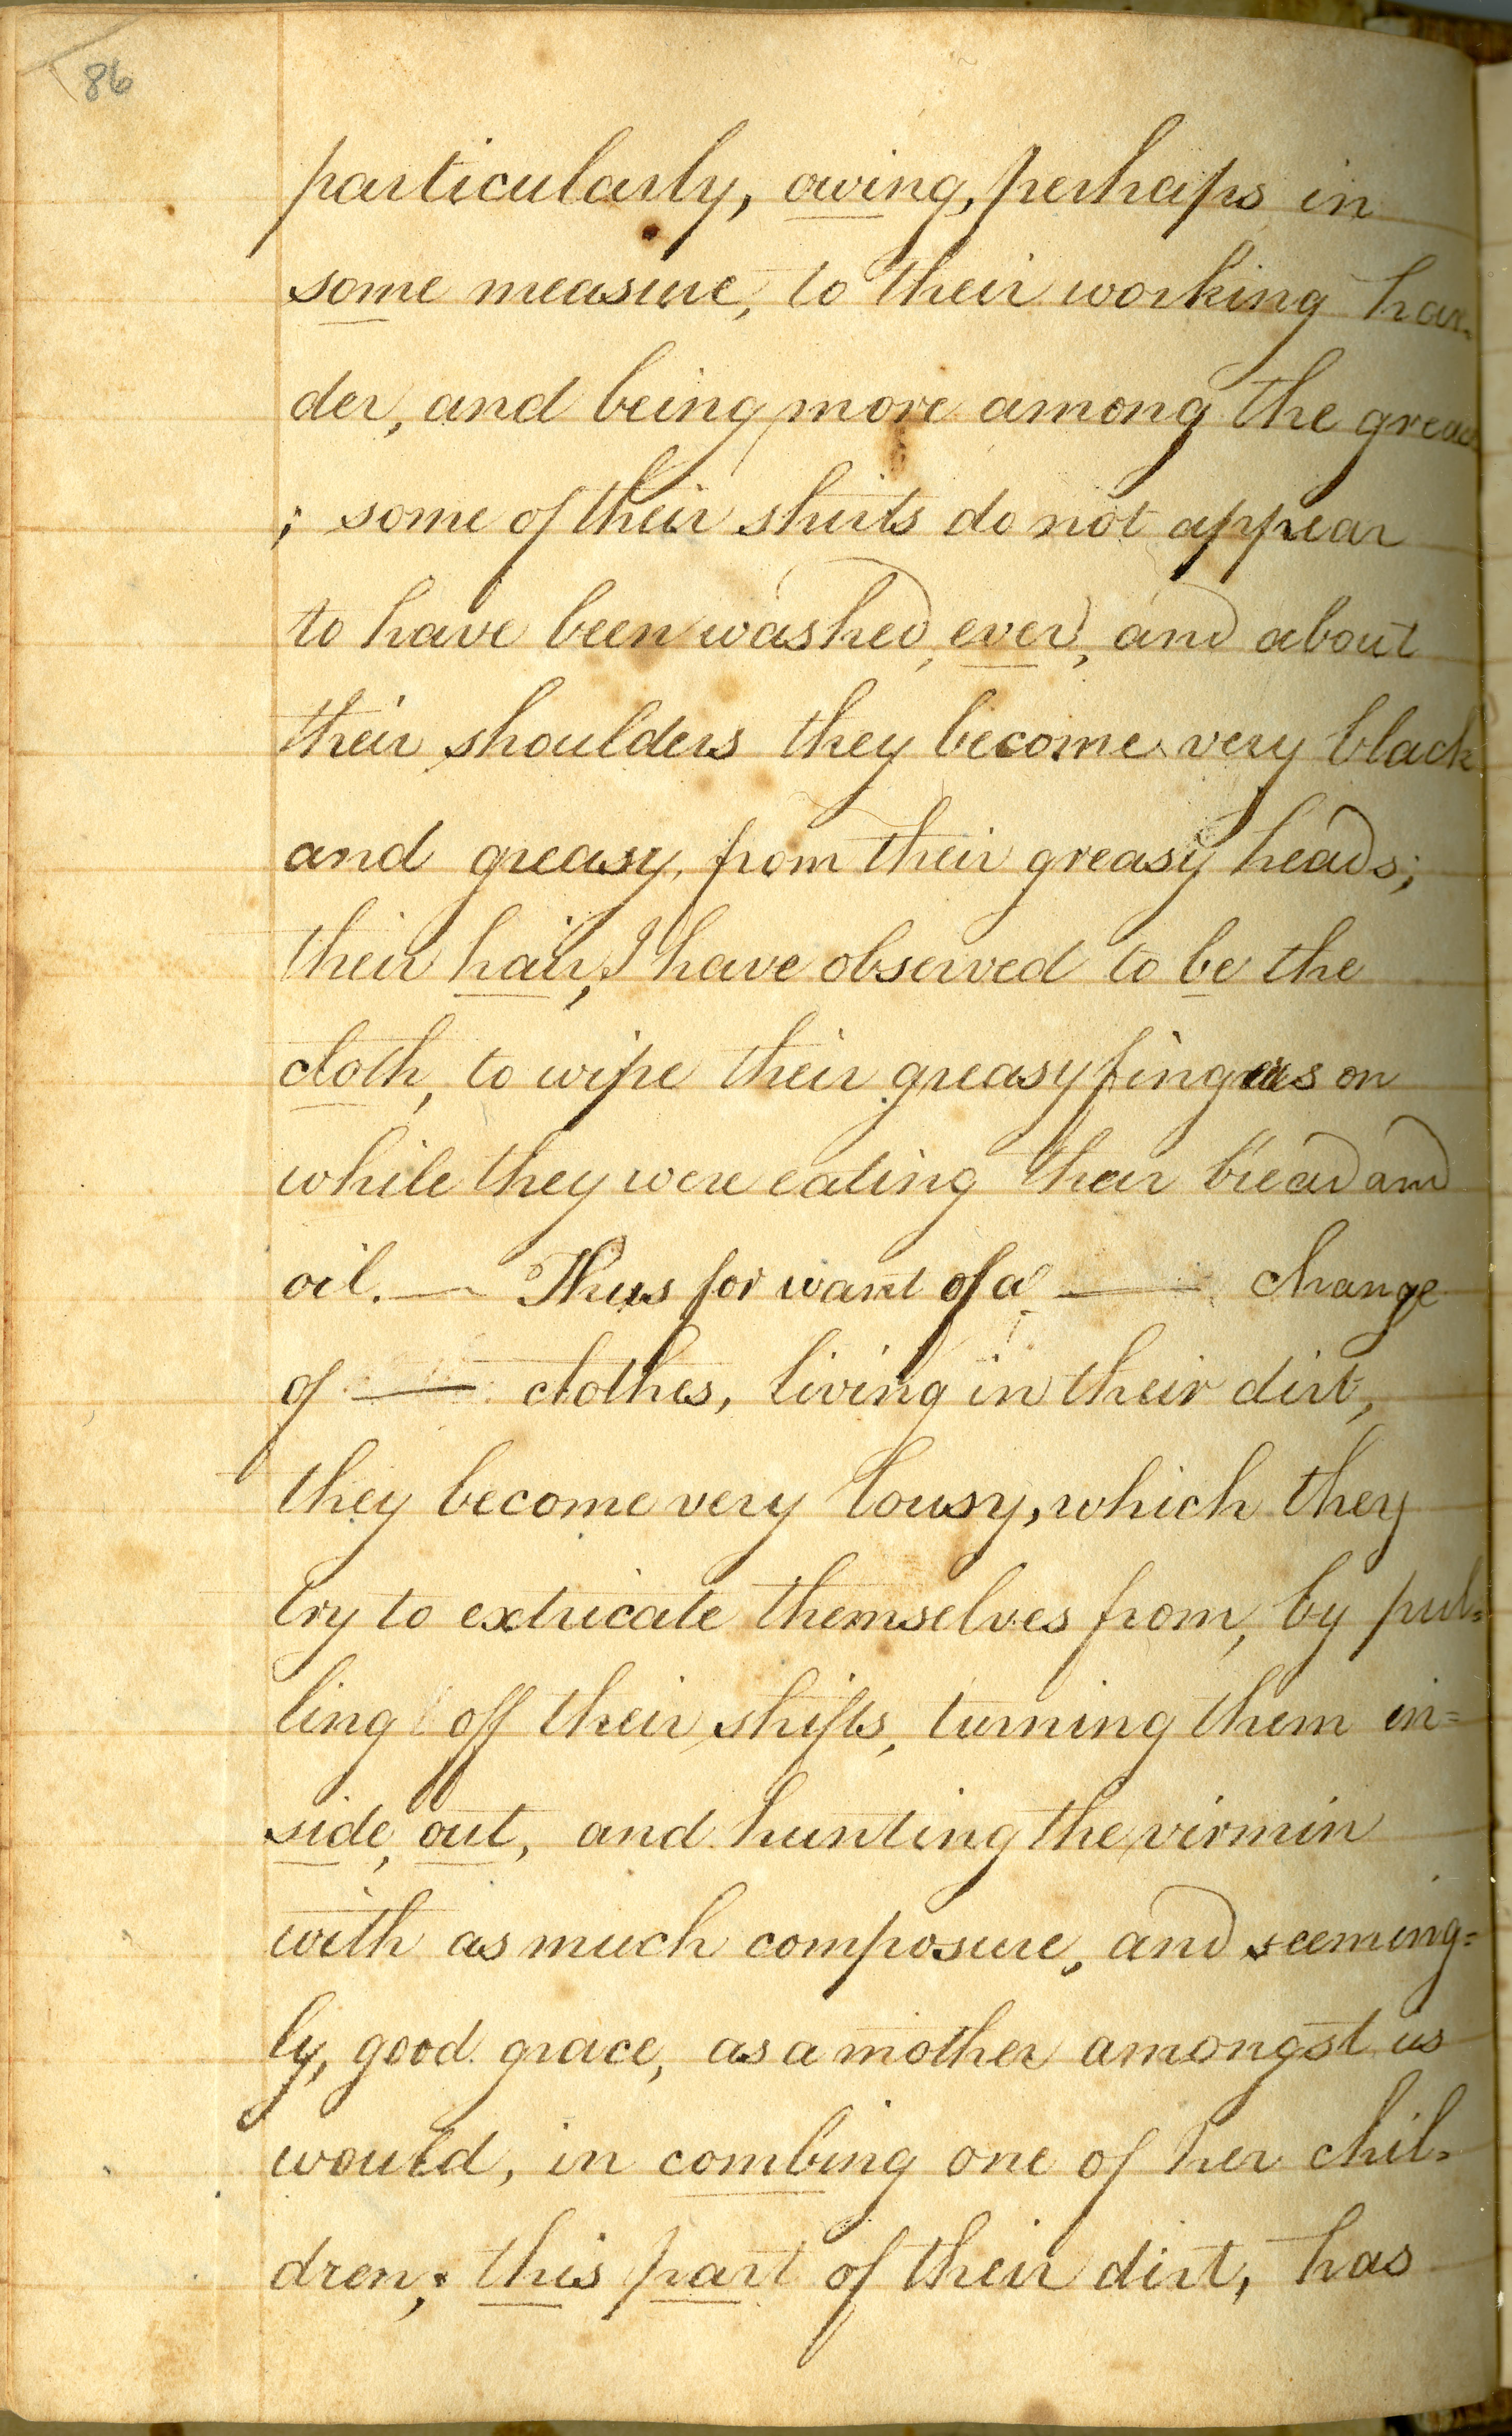 86
particularly, owing, perhaps in
some measure, to their working har-
der, and being more among the grease
; some of their shirts do not appear
to have been washed, ever, and about
their shoulders they become very black
and greasy, from their greasy heads;
their hair, I have observed to be the
cloth, to wipe their greasy fingers on
while they were eating their bread and
oil. — Thus for want of a — change
of — clothes, living in their dirt,
they become very lousy, which they
try to extricate themselves from, by pul=
ling off their shifts, turning them in=
side, out, and hunting the virmin
with as much composure, and seeming=
ly, good grace, as a mother amongst us
would, in combing one of her chil=
dren; this part of their dirt, has